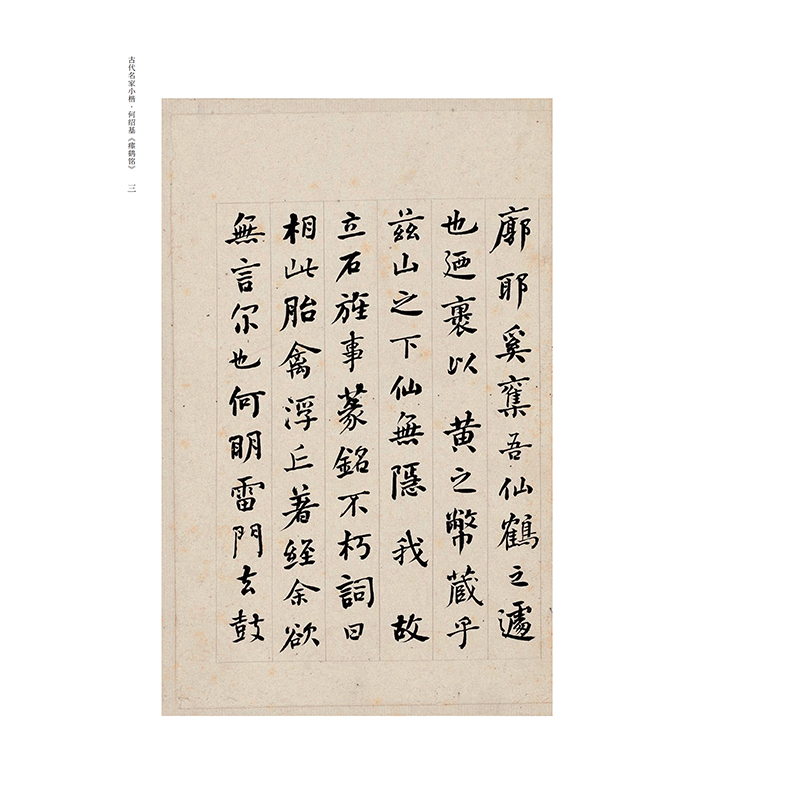 廓耶奚奪吾仙鶴之遽
也迺裹以黄之幣蔵乎
茲山之下仙無隱我故
立石旌事篆銘不朽詞曰
相此胎禽浮丘著經余欲
無言尔也何明雷門去鼓
古代名家小楷·何绍基《瘗鹤铭》 三